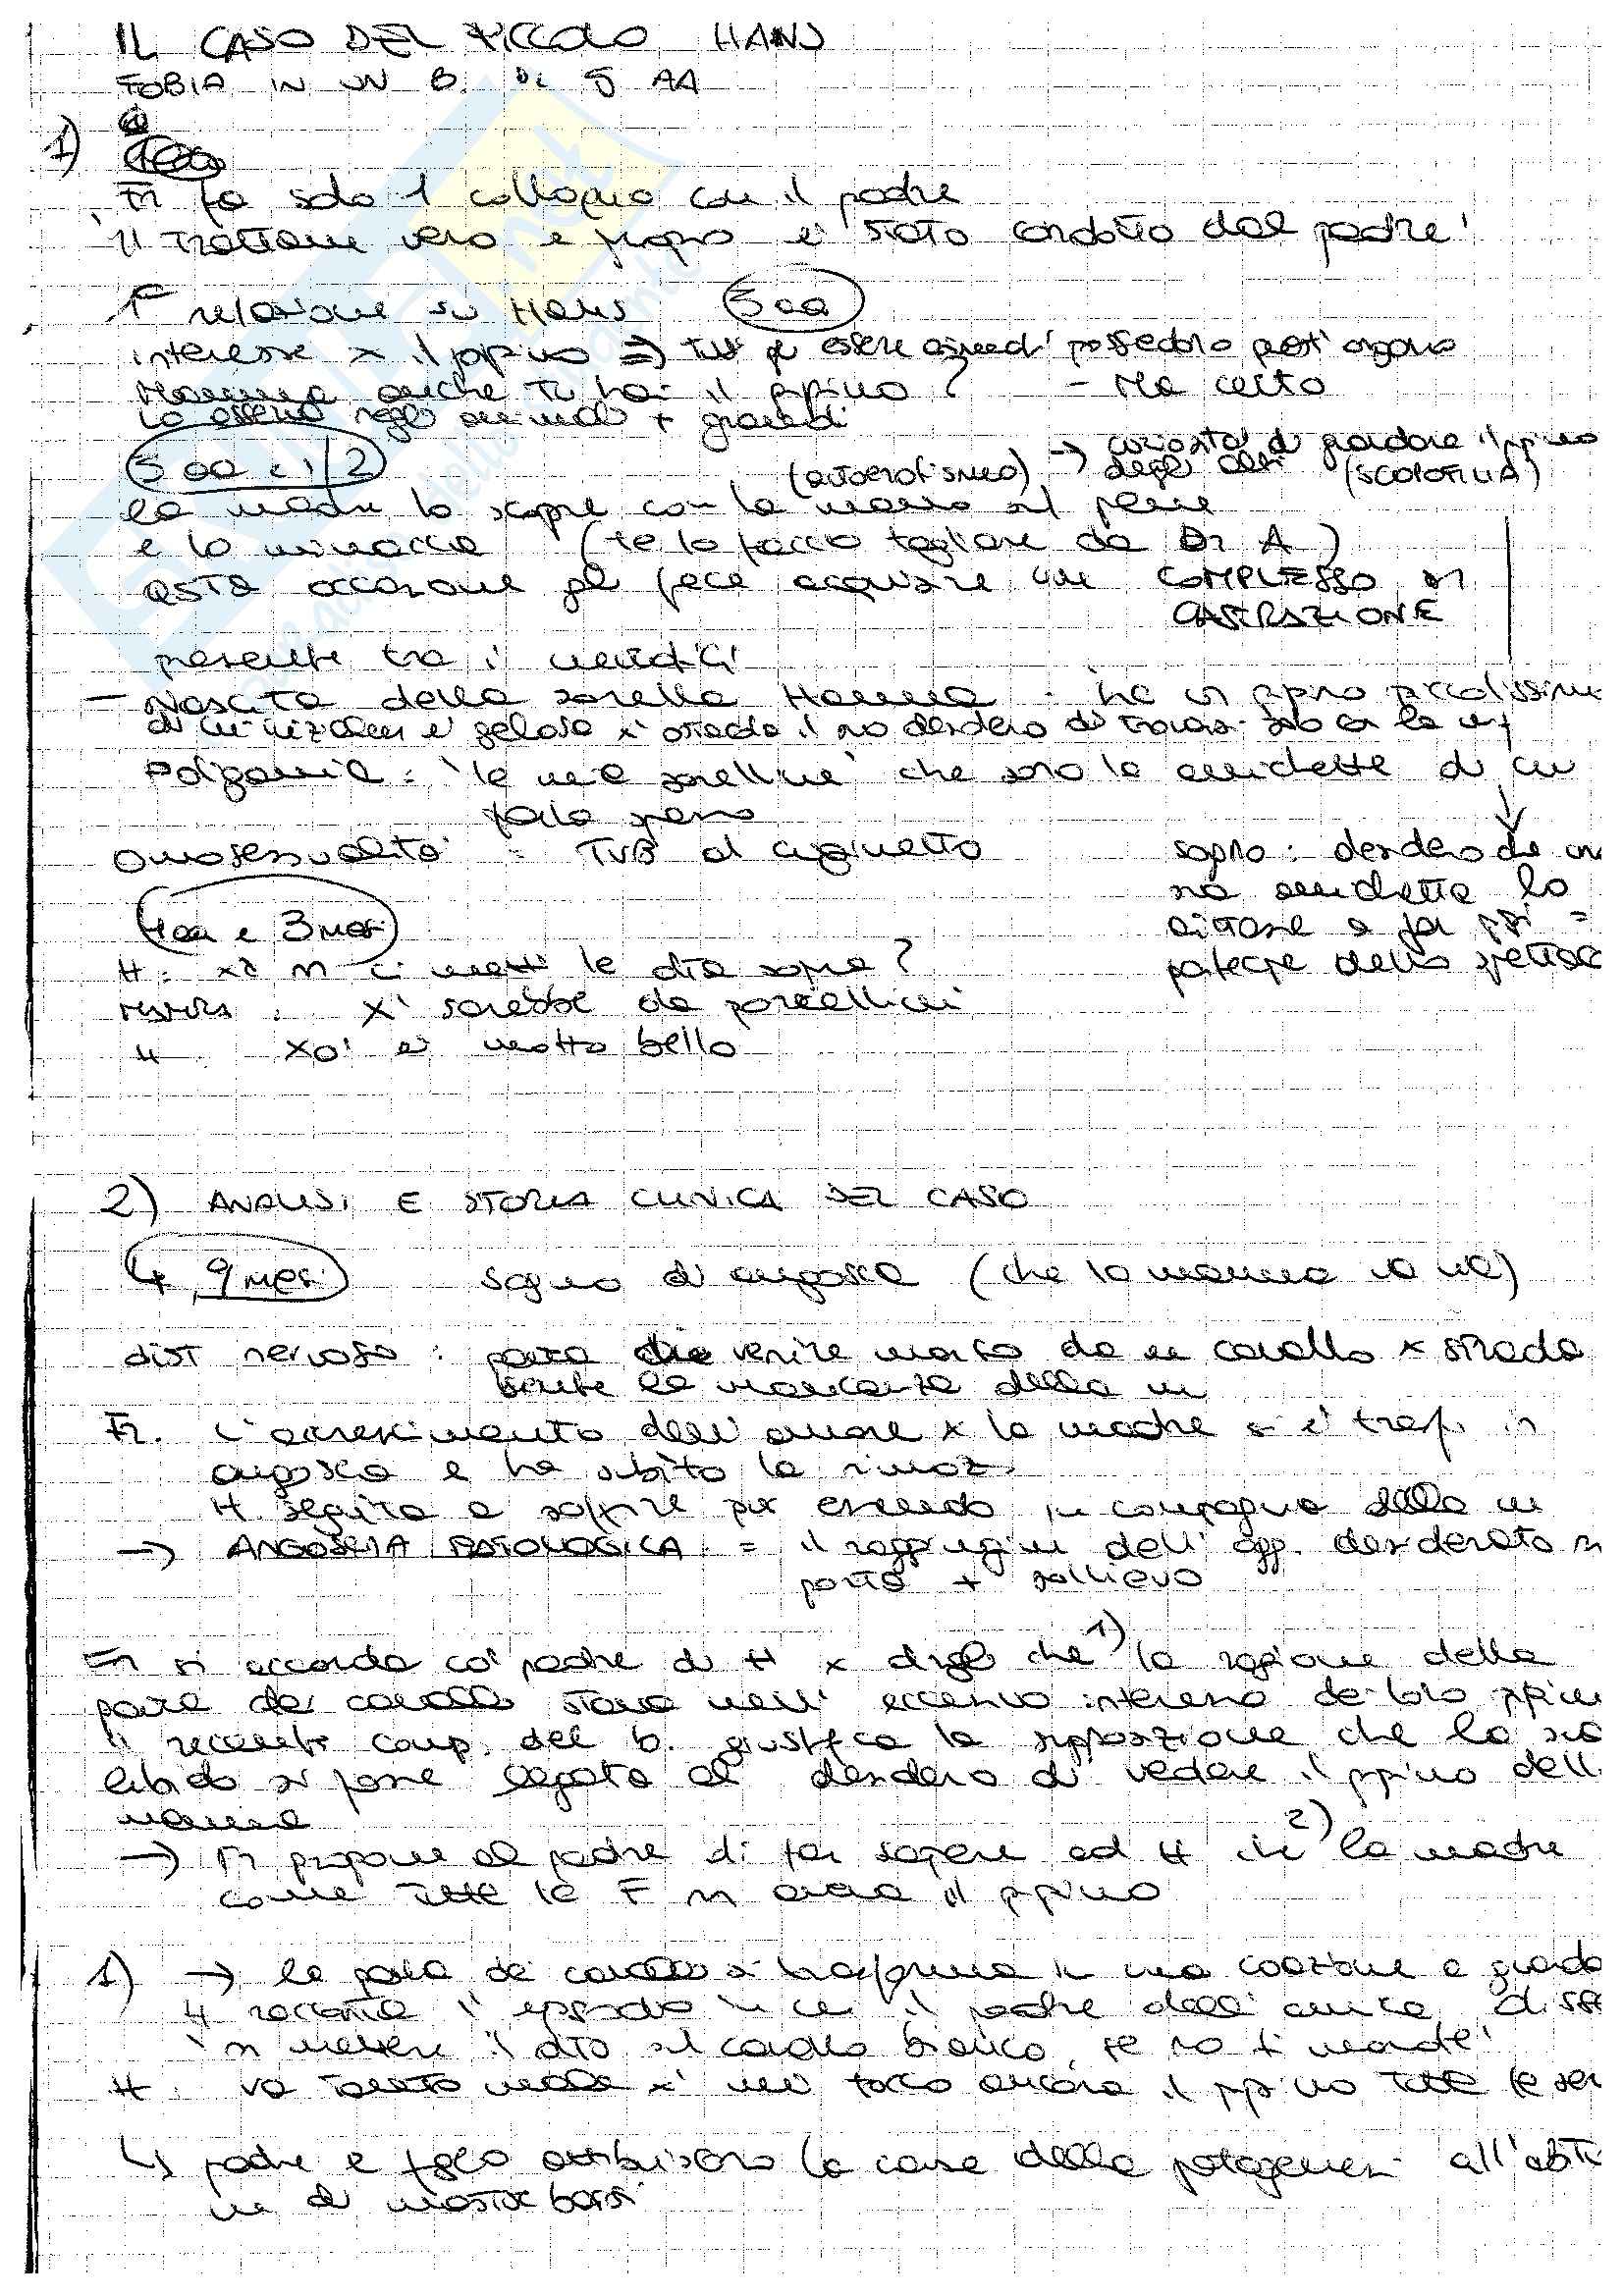 IL CASO DEL PICCOLO HANS
FOBIA IN UN B. DI 5 AA
1)
Fr fa solo 1 colloquio con il padre
Il trattam vero e proprio e' stato condotto dal padre
1ª relazione su Hans 3 aa
interesse x il pipino => Tutti gli esseri animati possiedono quest'organo
Mamma anche tu hai il pipino? - Ma certo
lo osserva negli animali + grandi
3 aa e 1/2 (autoerotismo) -> curiosita' di guardare il pipino
degli altri (SCOPOFILIA)
la madre lo scopre con la mano sul pene
e lo minaccia (te lo faccio tagliare da Dr A)
QSTA occasione gli fece acquisire un COMPLESSO DI
CASTRAZIONE
presente tra i nevrotici
- Nascita della sorella Hanna: ha un pipino piccolissimo
di cui e' geloso x' ostacola il suo desiderio di trovarsi solo con la m
Poligamia: 'le mie sorelline' che sono le amichette di cui
parla spesso
Omosessualita' : TVB al cuginetto
sogno: desiderio che una
sua amichetta lo
aiutasse a far pipi' =
partecipe dello spettac
4 aa e 3 mesi
H: xè n ci metti le dita sopra?
risposta: x' sarebbe da porcellini
H: xo' e' molto bello
2) ANALISI E STORIA CLINICA DEL CASO
4, 9 mesi sogno di angoscia (che la mamma va via)
dist nervoso: paura di venire morso da un cavallo x strada
sente la mancanza della m
Fr. L'accrescimento dell'amore x la madre si e' trasf. in
angoscia e ha subito la rimoz.
H seguita a soffrire pur essendo in compagnia della m
-> ANGOSCIA PATOLOGICA = il raggiungim dell'ogg. desiderato n
porta + sollievo
Fr si accorda col padre di H x dirgli che 1) la ragione della
paura dei cavalli stava nell'eccessivo interesse del loro pipino
Il recente comp. del b. giustifica la supposizione che la sua
libido si fosse legata al desiderio di vedere il pipino della
mamma
-> Fr propone al padre di far sapere ad H che 2) la madre
come tutte le F n aveva il pipino
1) -> la paura dei cavalli si trasforma in una coazione a guarda
H racconta l'episodio in cui il padre dell'amica disse
'n mettere il dito sul cavallo bianco, se no ti morde'
H: va tanto male x' mi tocco ancora il pipino tutte le ser
↳ padre e figlio attribuiscono la causa della patogenesi all'abitu
m di masturbarsi